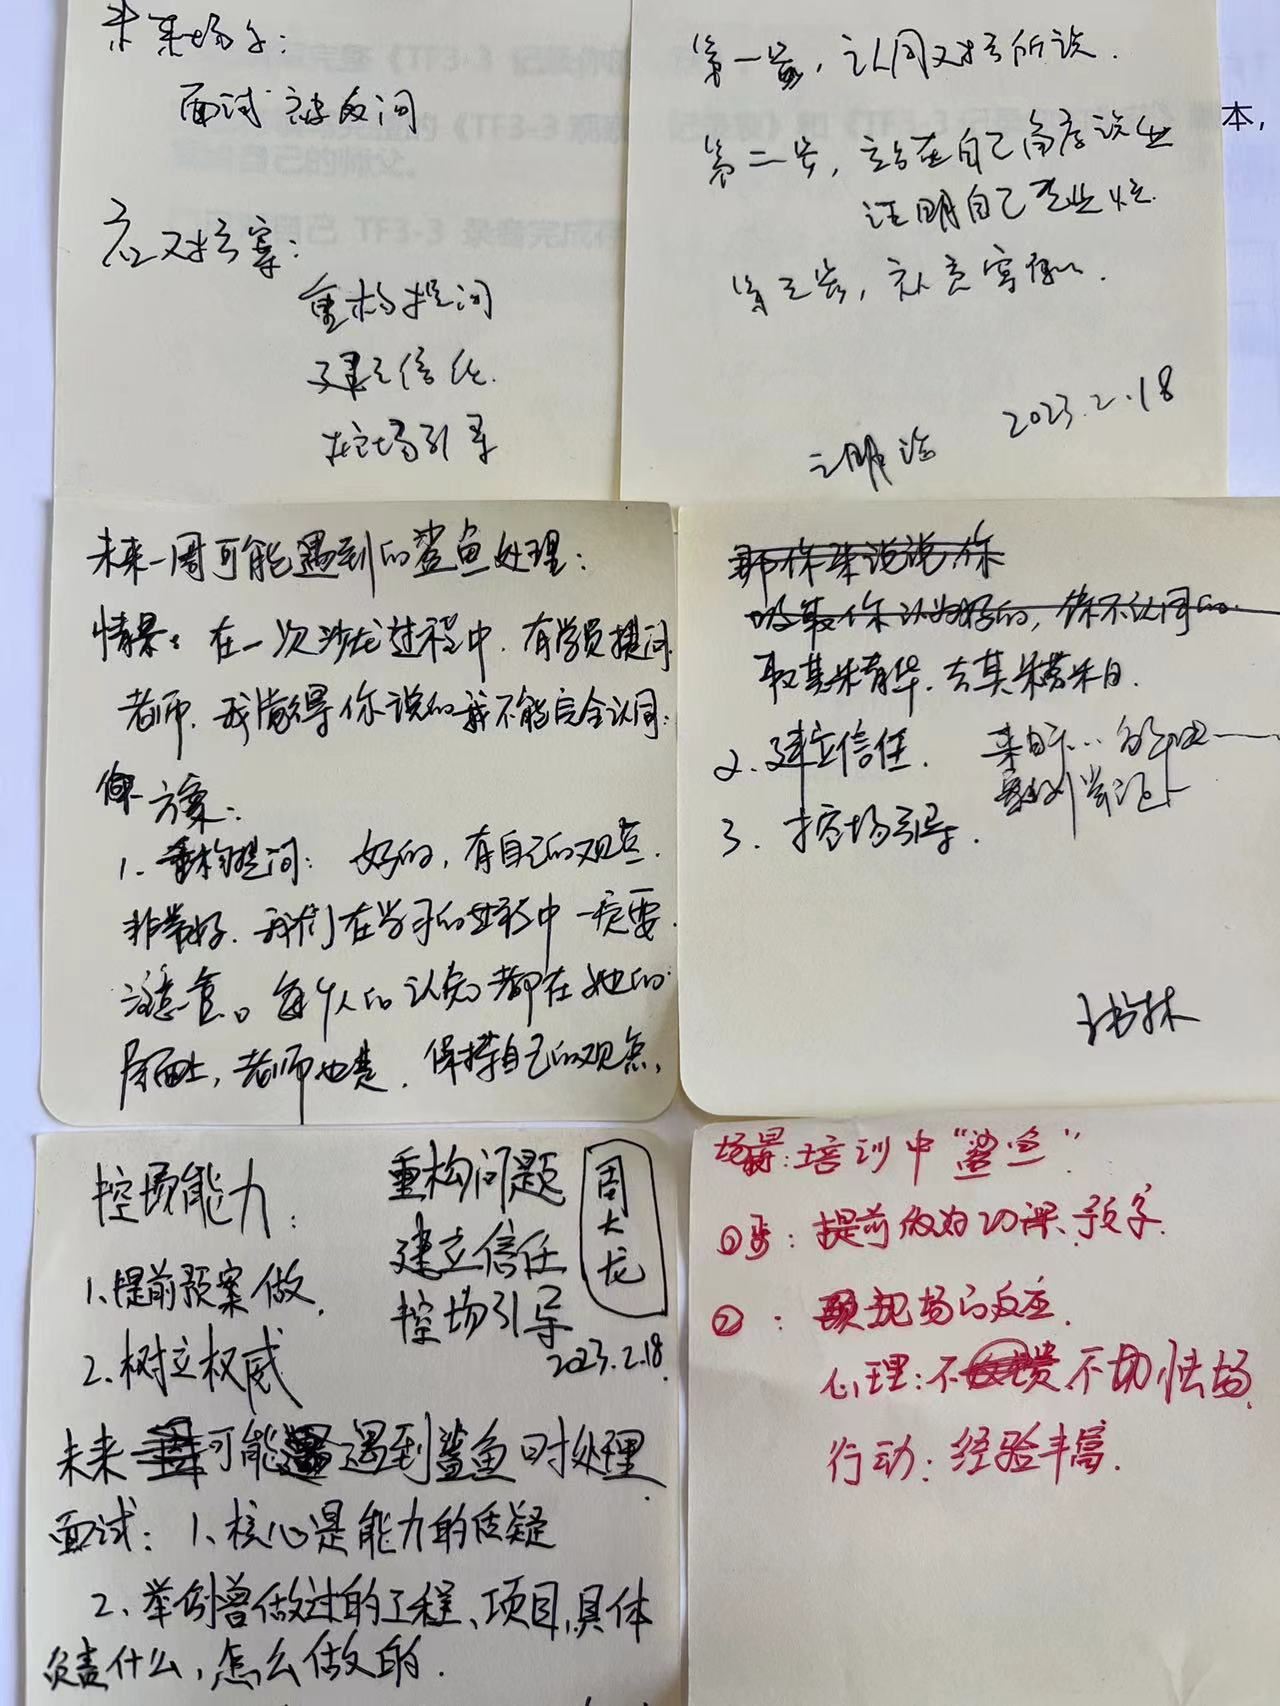 未来场子：
面试被反问
应对方案：
重构提问
建立信任
控场引导
第一步，认同对方所说.
第二步，站在自己角度说出
证明自己
第三步，
2023.2.18
本，
未来一周可能遇到的鲨鱼处理：
情景：在一次沙龙过程中.有学员提问
老师.我觉得你说的我不能完全认同：
方案：
1.重构提问：好的,有自己的观点.
非常好.我们在学习的过程中一定要
注意。每个人的认知都在她的
层面上,老师也是.保持自己的观点,
那你来说说你
吸取你认为好的,你不认同的
取其精华.去其糟粕.
2.建立信任. 来自…的
案例
3.控场引导.
控场能力：
1、提前预案做.
2、树立权威
重构问题
建立信任
控场引导
2023.2.18
周大龙
未来可能遇到鲨鱼时处理.
面试：1、核心是能力的质疑
2、举例曾做过的工程、项目,具体
负责什么,怎么做的.
场景:培训中“鲨鱼”
①步：提前做好功课、预案.
②：现场的反应.
心理:不 不切怯场.
行动：经验丰富.